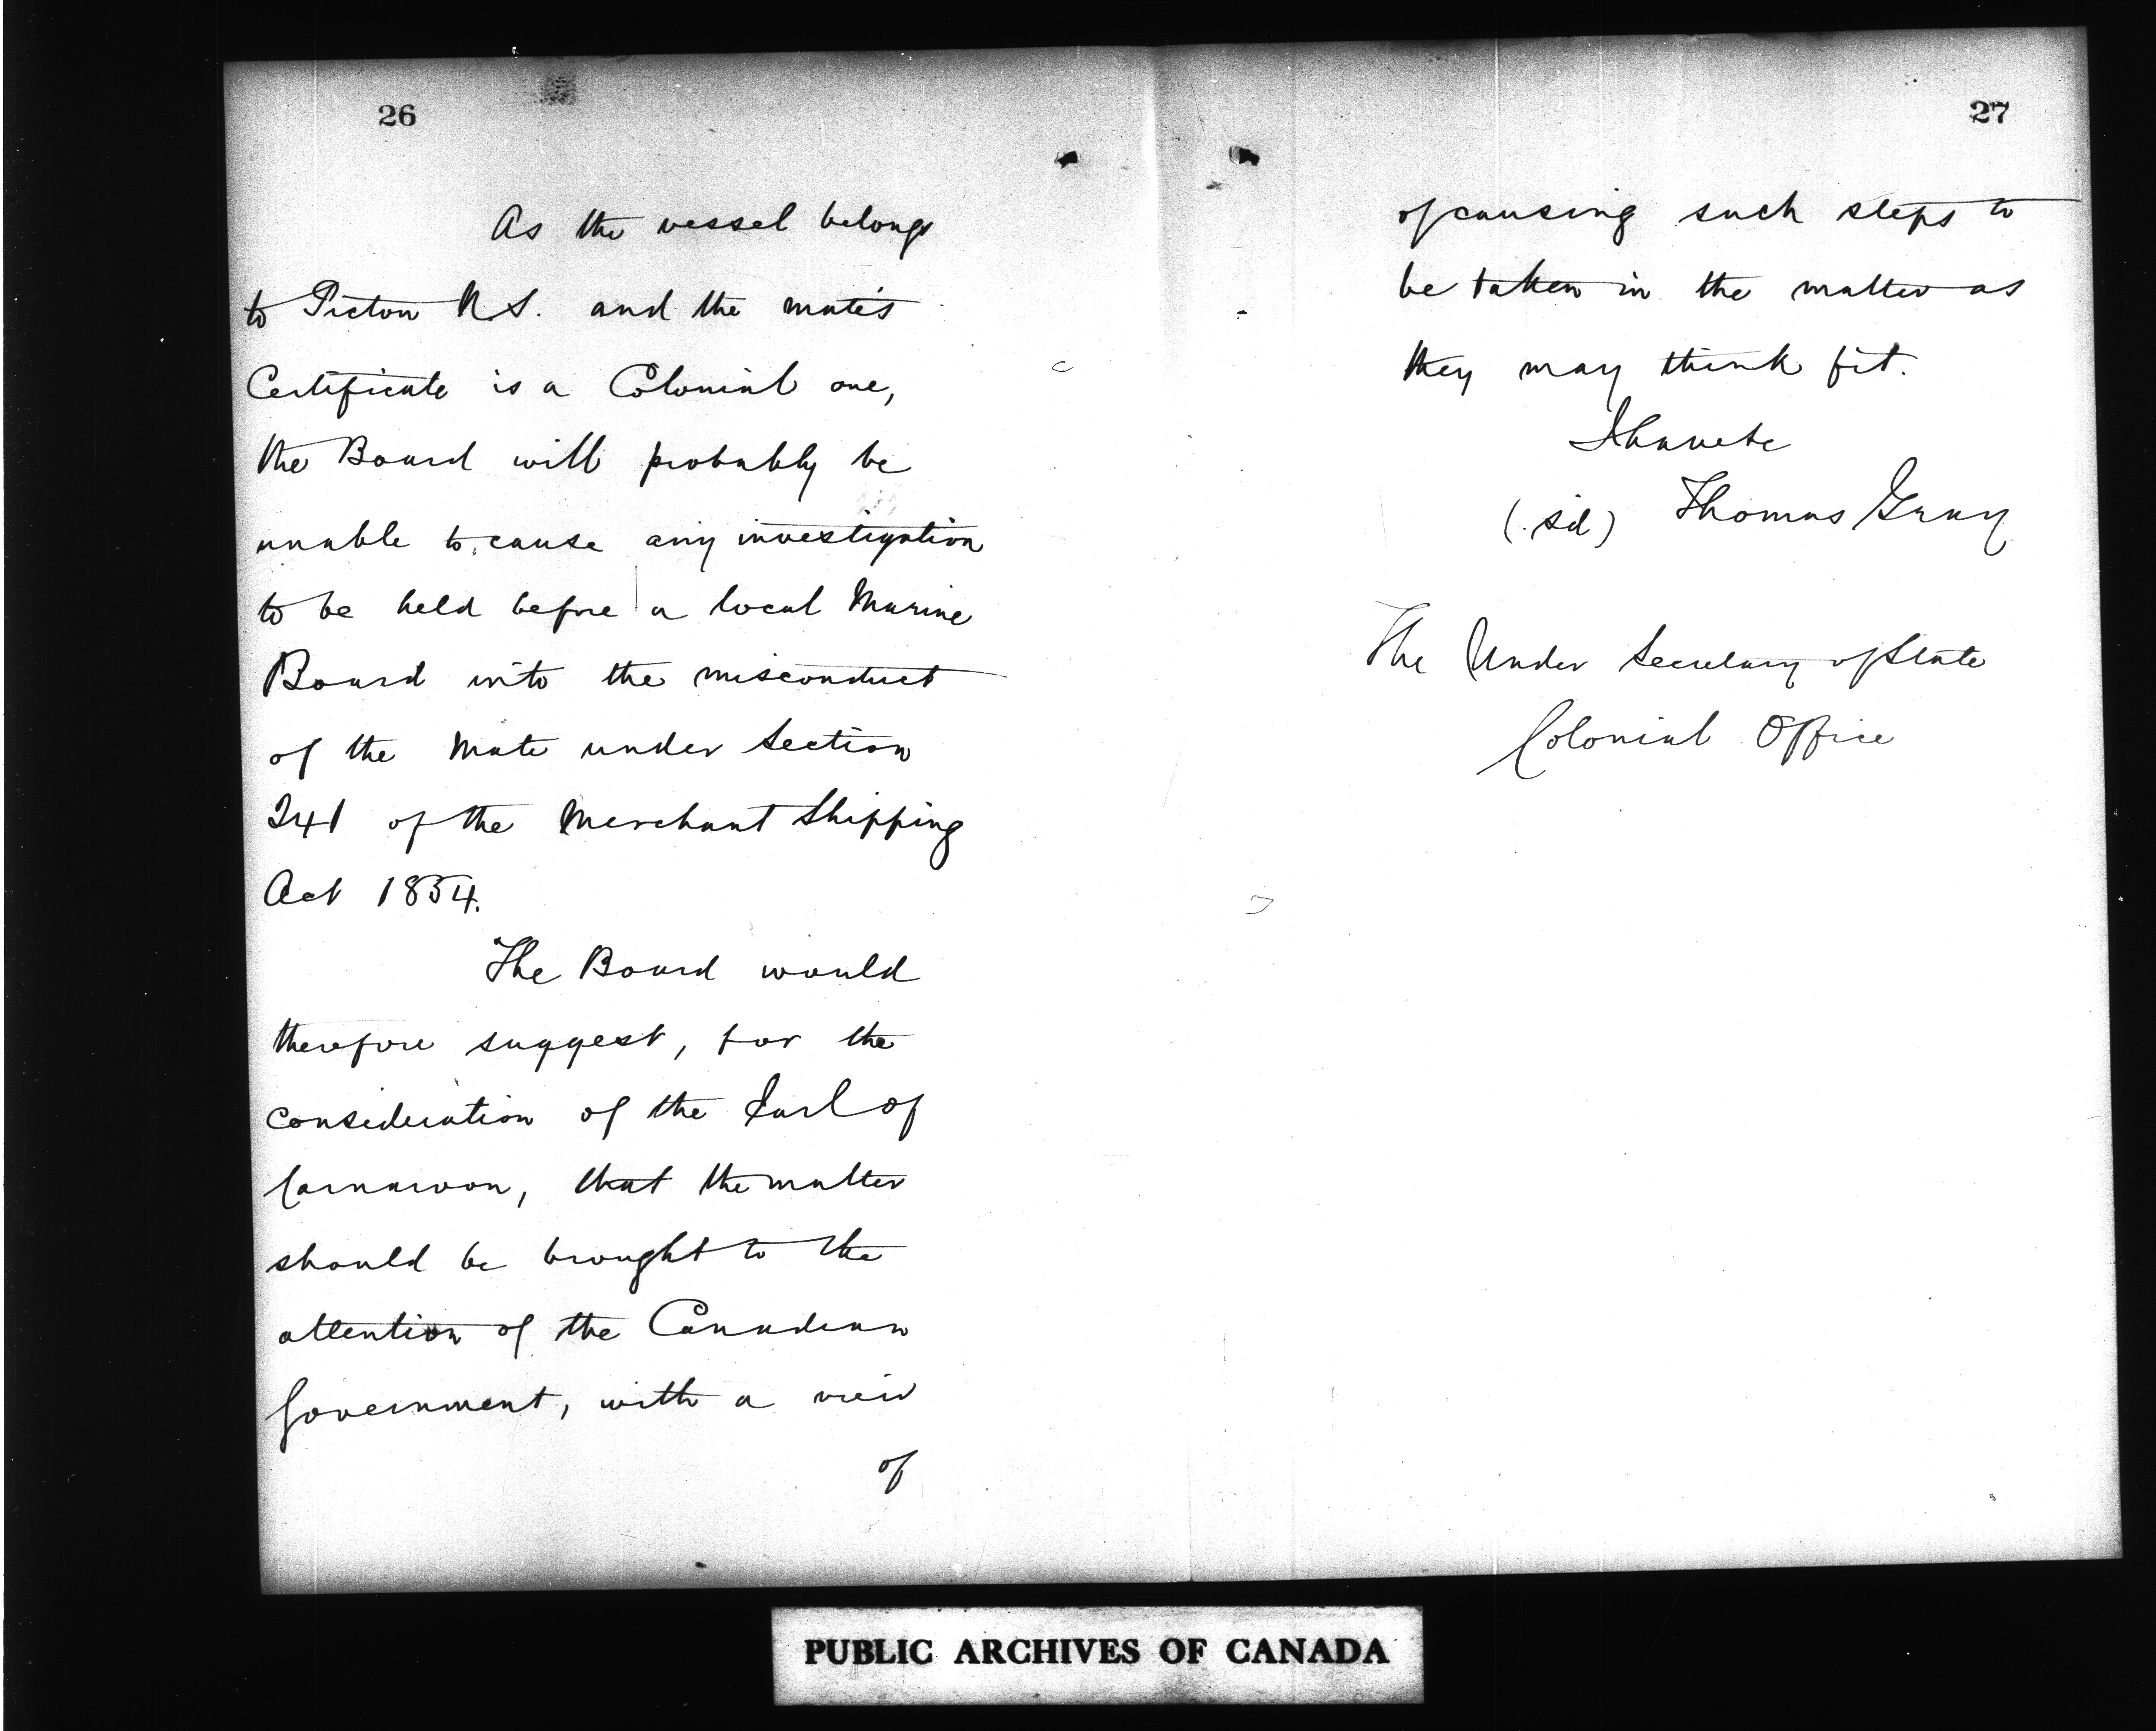 26
As the vessel belongs
to Picton N.S. and the mate's
Certificate is a Colonial one,
the Board will probably be
unable to cause any investigation
to be held before a local Marine
Board into the misconduct
of the Mate under Section
241 of the Merchant Shipping
Act 1854.
The Board would
therefore suggest, for the
consideration of the Earl of
Carnarvon, that the matter
should be brought to the
attention of the Canadian
Government, with a view
of
27
of causing such steps to
be taken in the matter as
they may think fit.
I have &c
(sd) Thomas Gray
The Under Secretary of State
Colonial Office
PUBLIC ARCHIVES OF CANADA